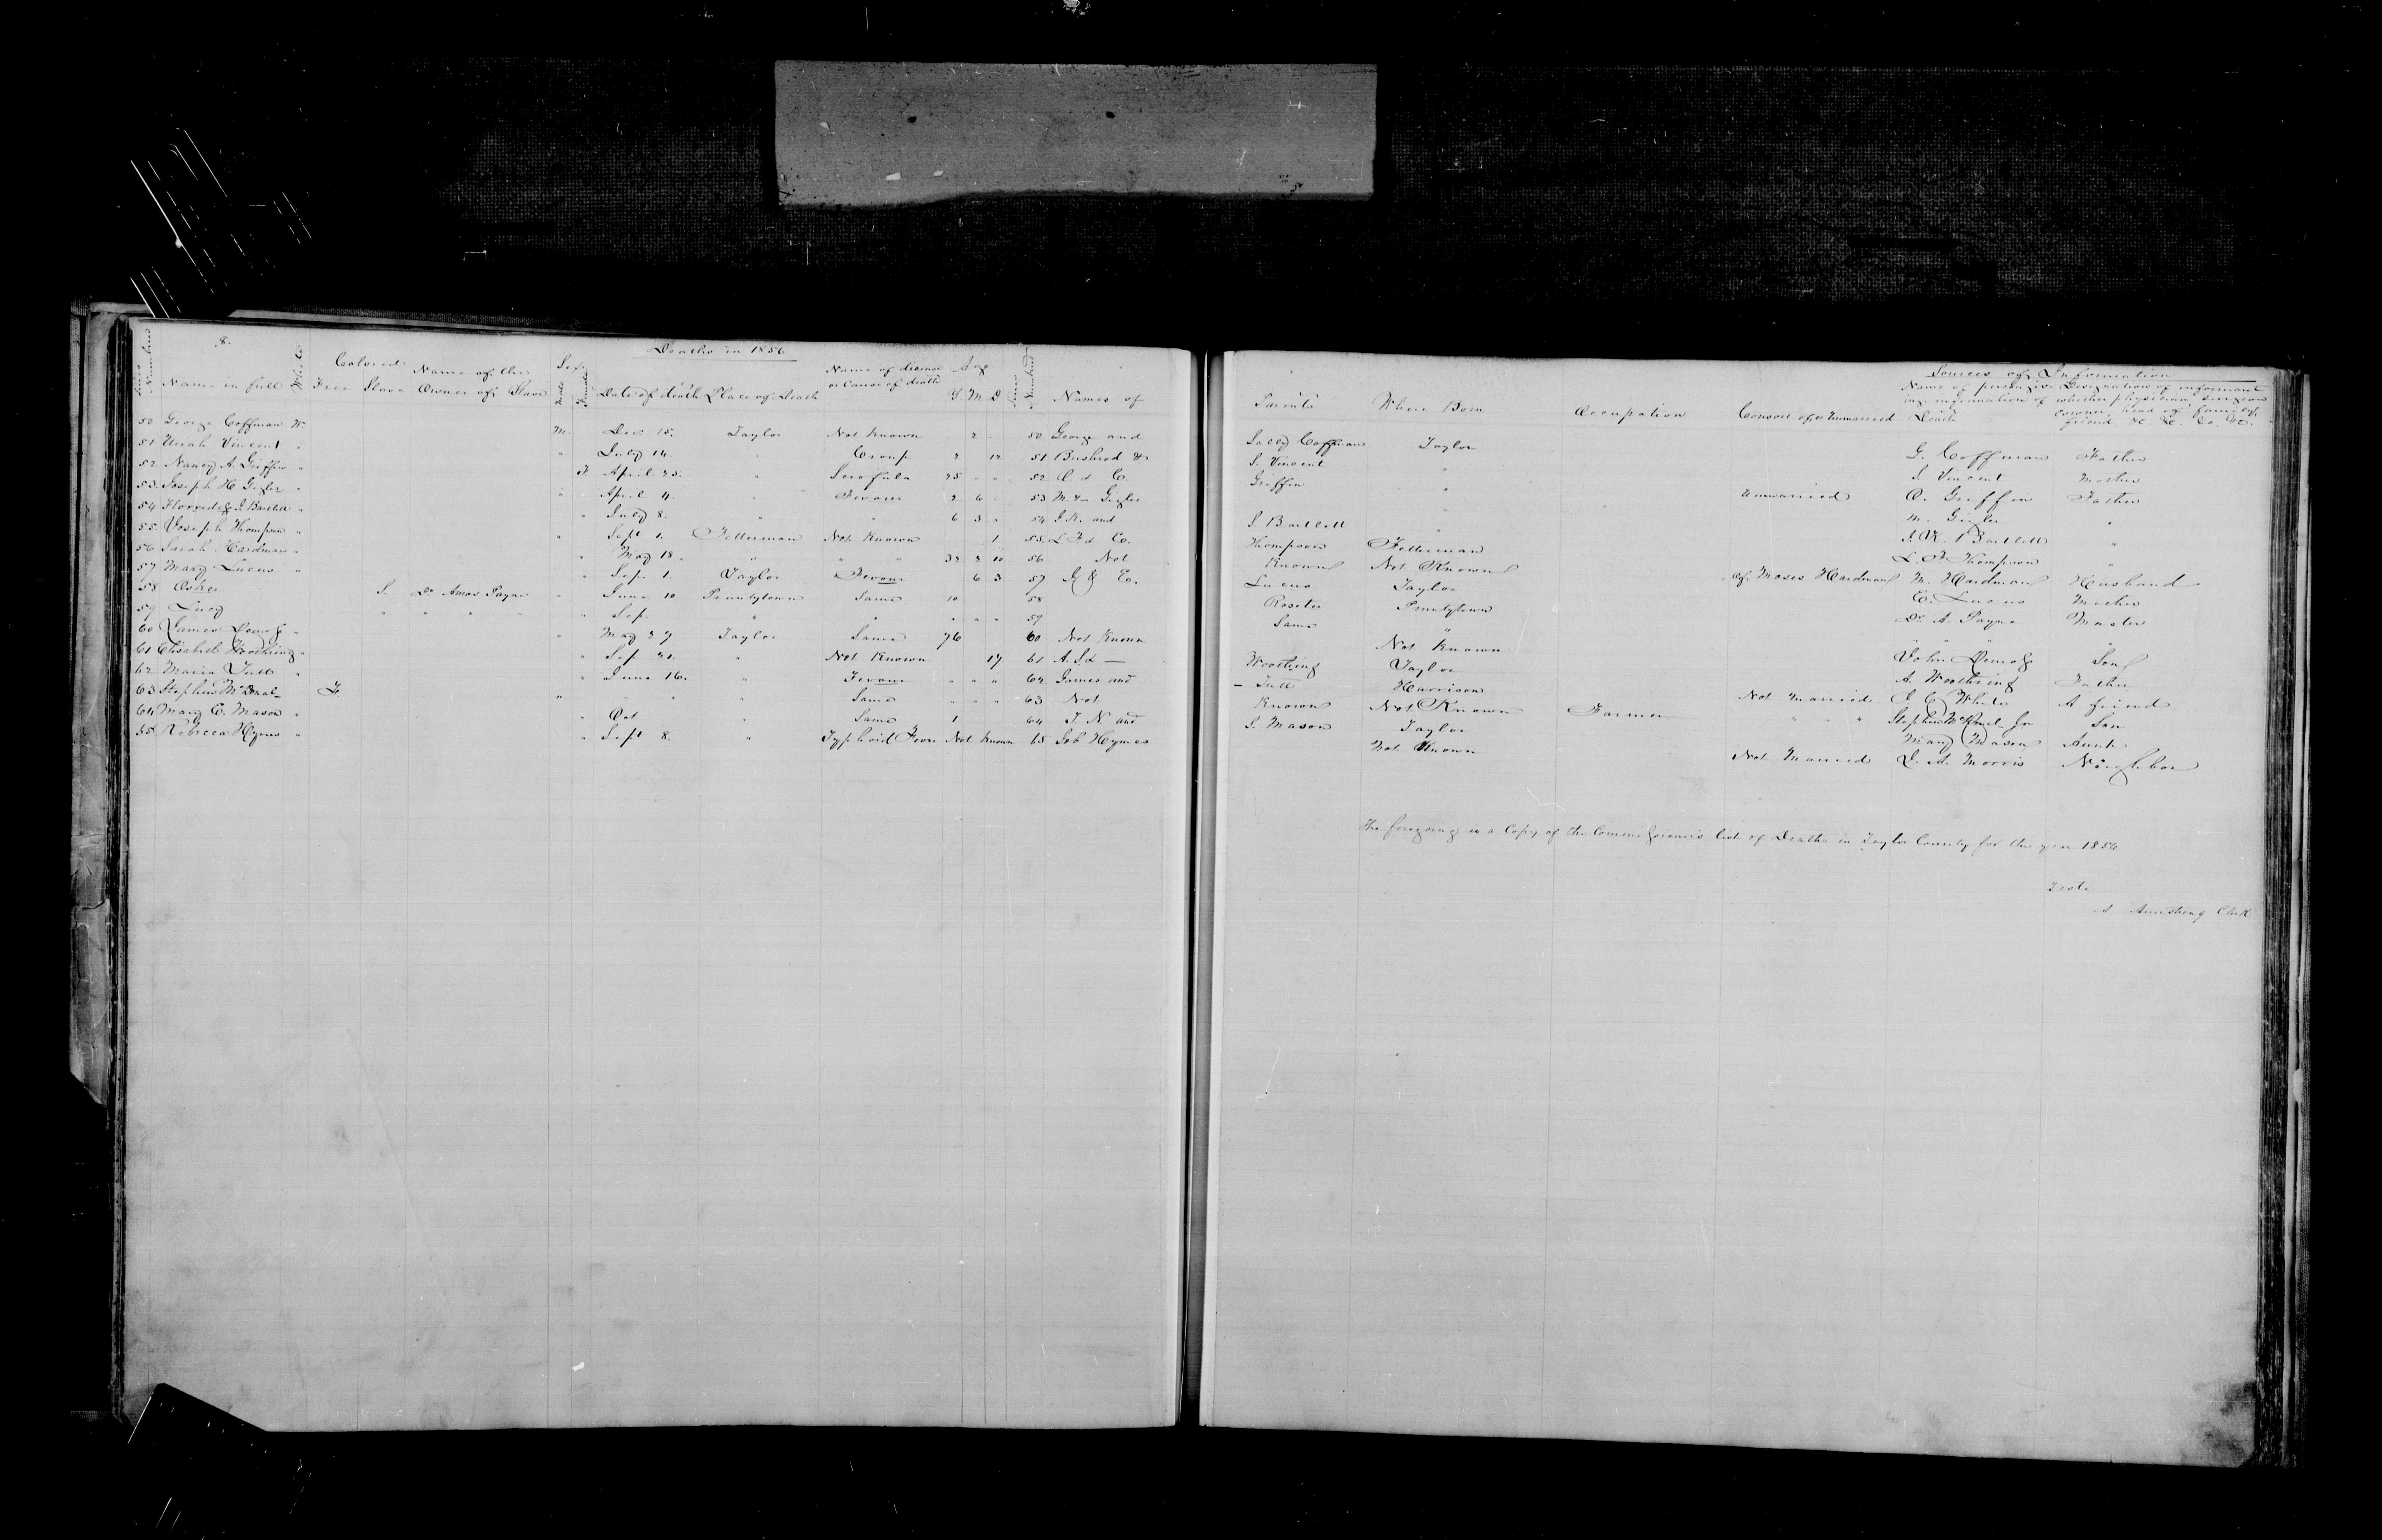 8.
Deaths in 1856
Lines Numbered Name in full White Colored Free Slave Name of the Owner of Slave Sex Male Female Date of death Place of Death Name of disease or Cause of death Age Y. M. D. Lines Numbered Names of
50 George Coffman W. M. Dec 15. Taylor Not Known 2 50 George and
51 Uriah Vincent " " July 14. " Croup 2 " 12 51 Bushrod &
52 Nancy A. Griffin " F April 23. " Scrofula 25 " " 52 O. & E.
53. Joseph H " " April 4. " Fevour 2 6 53 M. &
54 J. Bartlett " " July 8. " " 6 3 " 54 J. R. and
55. Joseph Thompson " " Sept 1. Fetterman Not Known 1 55. L F & E.
56 Sarah Hardman " " May 18 " " " 32 2 10 56 Not
57 Mary Lucus " " Sep. 1. Taylor Fevour 6 3 57 & E.
58 S. Dr Amos Payne " June 10 Pruntytown Same 10 58
59 Lucy " " " " " Sep. " " " " " 59
60 James " " May 27 Taylor Same 76 60 Not Known
61 Elisabeth " " Sep 21. " Not Known 17 61 A. S. & —
62 Maria Tutt " " June 16. " Fevour " " " 62 James and
63 Stephen F " " " Same " " " 63 Not
64 Mary E. Mason " " Oct " Same 1 64 T. N and
65 Rebecca Hymes " " Sept 8. " Typhoid Fever Not Known 65 Job Hymes
Sources of Information
Parents Where Born Occupation Consort of or Unmarried Name of person giving information of Death Designation of informant whether physician, surgeon coroner, head of family, friend &c &c. &c. &c.
Sally Coffman Taylor G. Coffman Father
S. Vincent " S. Vincent Mother
Griffin " Unmarried O. Griffin Father
" M. "
S Bartlett " J. R. Bartlett "
Thompson Fetterman L. F. Thompson "
Known Not Known of Moses Hardman M. Hardman Husband
Lucus Taylor E. Lucus Mother
Rosetta Pruntytown Dr A. Payne Master
Same " " " " "
Not Known John Son
Taylor A. Father
— Tutt Harrison Not Married White A friend
Known Not Known Farmer " " " Stephen Son
S. Mason Taylor Mary Mason Aunt
Not Known Not Married A. Morris Neighbor
The foregoing is a Copy of the Commissioner's list of Deaths in Taylor County for the year 1856
Teste
A. Armstrong Clerk